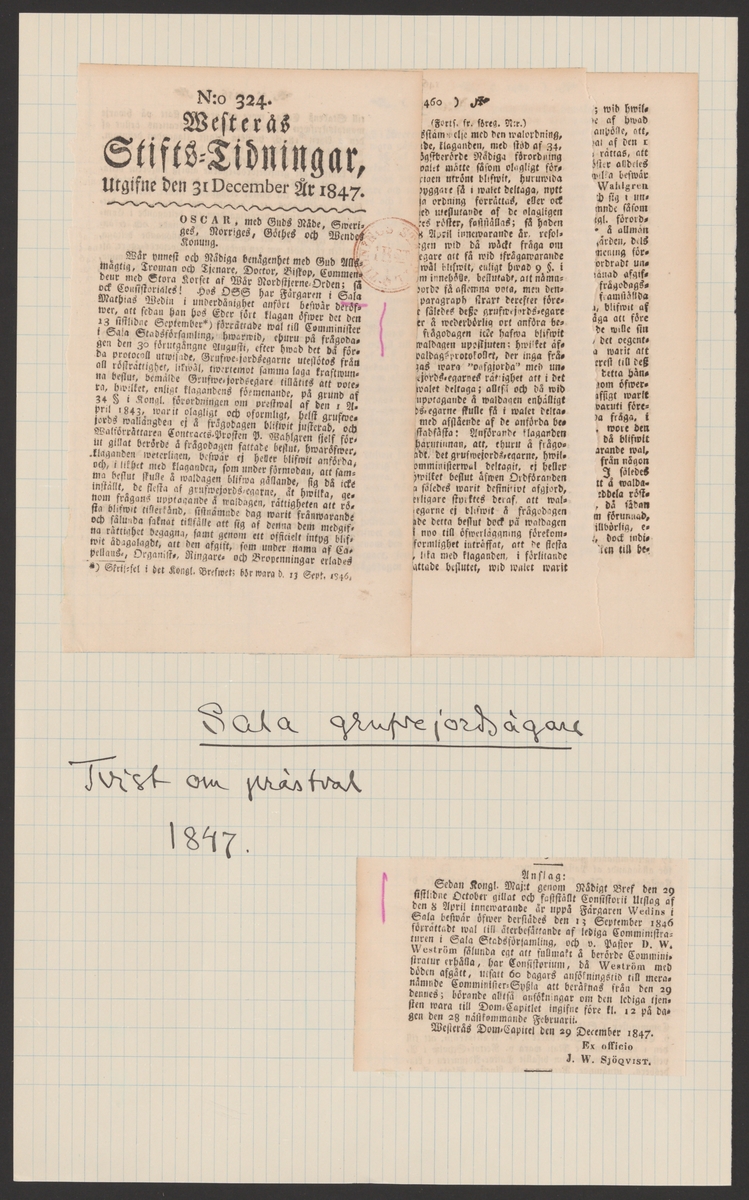 N:o 324.
Westerås
Stifts-Tidningar,
Utgifne den 31 December År 1847.
OSCAR, med Guds Nåde, Sweri-
ges, Norriges, Göthes och Wendes
Konung.
Wår ynnest och Nådiga benägenhet med Gud Alls-
mägtig, Troman och Tjenare, Doctor, Biskop, Commen-
deur med Stora Korset af Wår Nordstjerne-Orden; så
ock Consistoriales! Hos OSS har Färgaren i Sala
Mathias Wedin i underdånighet anfört beswär deröf-
wer, att sedan han hos Eder fört klagan öfwer det den
13 sistlidne September*) förrättade wal till Comminister
i Sala Stadsförsamling, hwarwid, ehuru på frågoda-
gen den 30 förutgångne Augusti, efter hwad det då för-
da protocoll utwisade, Grufwe-jordsegarne uteslötos från
all rösträttighet, likwäl, twertemot samma laga kraftwun-
na beslut, bemälde Grufwejordsegare tillåtits att vote-
ra, hwilket, enligt klagandens förmenande, på grund af
34 § i Kongl. förordningen om prestwal af den 1 A-
pril 1843, warit olagligt och oformligt, helst grufwe-
jords wallängden ej å frågodagen blifwit justerad, och
Walförrättaren Contracts-Prosten P. Wahlgren sjelf för-
ut gillat berörde å frågodagen fattade beslut, hwaröfwer,
klaganden weterligen, beswär ej heller blifwit anförda,
och, i likhet med klaganden, som under förmodan, att sam-
ma beslut skulle å waldagen blifwa gällande, sig då icke
inställt, de flesta af grufwejords-egarne, åt hwilka, ge-
nom frågans upptagande å waldagen, rättigheten att rö-
sta blifwit tillerkänd, sistnämde dag warit frånwarande
och sålunda saknat tillfälle att sig af denna dem medgif-
na rättighet begagna, samt genom ett officielt intyg blif-
wit ådagalagdt, att den afgift, som under namn af Ca-
pellans-, Organist-, Ringare- och Bropenningar erlades
*) Skrifsel i det Kongl. Brefwet; bör wara d. 13 Sept. 1846.
460 )
(Forts. fr. föreg. N:r.)
med den walordning,
klaganden, med stöd af 34,
Nådiga förordning
walet måtte såsom olagligt för-
blifwit, huruwida
så i walet deltaga, nytt
ordning förrättas, eller ock
uteslutande af de olagligen
röster, fastställas; så haden
April innewarande år, resol-
wid då wäckt fråga om
egare att få wid ifrågawarande
blifwit, enligt hwad 9 §. i
innehölle, beslutadt, att nämn-
afstemna vota, men den-
paragraph klart derefter före-
således desse grufwe-jords-egare
å wederbörlig ort anföra be-
frågodagen icke hafwa blifwit
waldagen uppskjuten; hwilket af-
waldagsprotokollet, der inga frå-
wara "oafgjorda" med un-
rättighet att i det
walet deltaga; alltså och då wid
upptagande å waldagen enhälligt
skulle få i walet delta-
med afslående af de anförda be-
Anförande klaganden
härutinnan, att, ehuru å frågo-
det grufwejords-egarne, hwil-
deltagit, ej heller
hwilket beslut äfwen Ordföranden
således warit definitivt afgjord,
styrktes deraf, att wal-
ej blifwit å frågodagen
detta beslut dock på waldagen
till öfwerläggning förekom-
formlighet inträffat, att de flesta
lika med klaganden, i förlitande
fattade beslutet, wid walet warit
; wid hwil-
af hwad
anhölle, att,
af den 1
rättas, att
alldeles
befwär
Wahlgren
sig i un-
såsom
förord-
å allmän
dels
mening för-
un-
afgif-
frågodags-
framställda
blifwit af
att före
wille sin
det oegent-
warit att
till deß
detta hän-
som öfwer-
warit
före-
wore den
då blifwit
wal,
från någon
J således
å walda-
röst-
då sådan
förnunnad,
e-
dock indi-
till be-
Sala grufvejordsägare
Tvist om prästval
1847.
Anslag:
Sedan Kongl. Maj:t genom Nådigt Bref den 29
sistlidne October gillat och fastställt Consistorii Utslag af
den 8 April innewarande år uppå Färgaren Wedins i
Sala beswär öfwer derstädes den 13 September 1846
förrättadt wal till återbesättande af lediga Comministra-
turen i Sala Stadsförsamling, och v. Pastor D. W.
Weström sålunda egt att fullmakt å berörde Commini-
stratur erhålla, har Consistorium, då Weström med
döden afgått, utsatt 60 dagars ansökningstid till mera-
nämnde Comminister-Syßla att beräknas från den 29
dennes; börande alltså ansökningar om den lediga tjen-
sten wara till Dom-Capitlet ingifne före kl. 12 på da-
gen den 28 nästkommande Februarii.
Westerås Dom-Capitel den 29 December 1847.
Ex officio
J. W. SJÖQVIST.